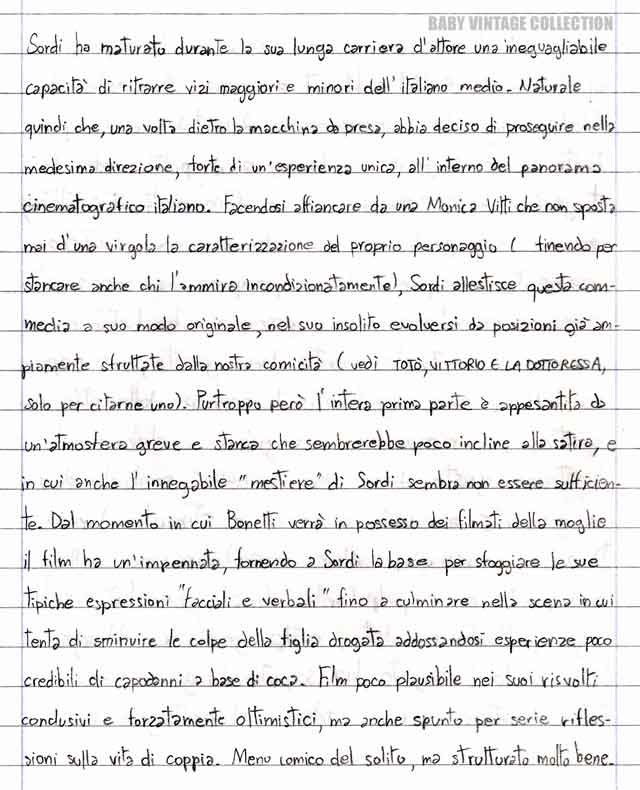 BABY VINTAGE COLLECTION
Sordi ha maturato durante la sua lunga carriera d'attore una ineguagliabile
capacità di ritrarre vizi maggiori e minori dell'italiano medio. Naturale
quindi che, una volta dietro la macchina da presa, abbia deciso di proseguire nella
medesima direzione, forte di un'esperienza unica, all'interno del panorama
cinematografico italiano. Facendosi affiancare da una Monica Vitti che non sposta
mai d'una virgola la caratterizzazione del proprio personaggio (finendo per
stancare anche chi l'ammira incondizionatamente), Sordi allestisce questa com-
media a suo modo originale, nel suo insolito evolversi da posizioni già am-
piamente sfruttate dalla nostra comicità (vedi TOTÒ, VITTORIO E LA DOTTORESSA,
solo per citarne uno). Purtroppo però l'intera prima parte è appesantita da
un'atmosfera greve e stanca che sembrerebbe poco incline alla satira, e
in cui anche l'innegabile "mestiere" di Sordi sembra non essere sufficien-
te. Dal momento in cui Bonetti verrà in possesso dei filmati della moglie
il film ha un'impennata, fornendo a Sordi la base per sfoggiare le sue
tipiche espressioni "facciali e verbali" fino a culminare nella scena in cui
tenta di sminuire le colpe della figlia drogata addossandosi esperienze poco
credibili di capodanni a base di coca. Film poco plausibile nei suoi risvolti
conclusivi e forzatamente ottimistici, ma anche spunto per serie rifles-
sioni sulla vita di coppia. Meno comico del solito, ma strutturato molto bene.